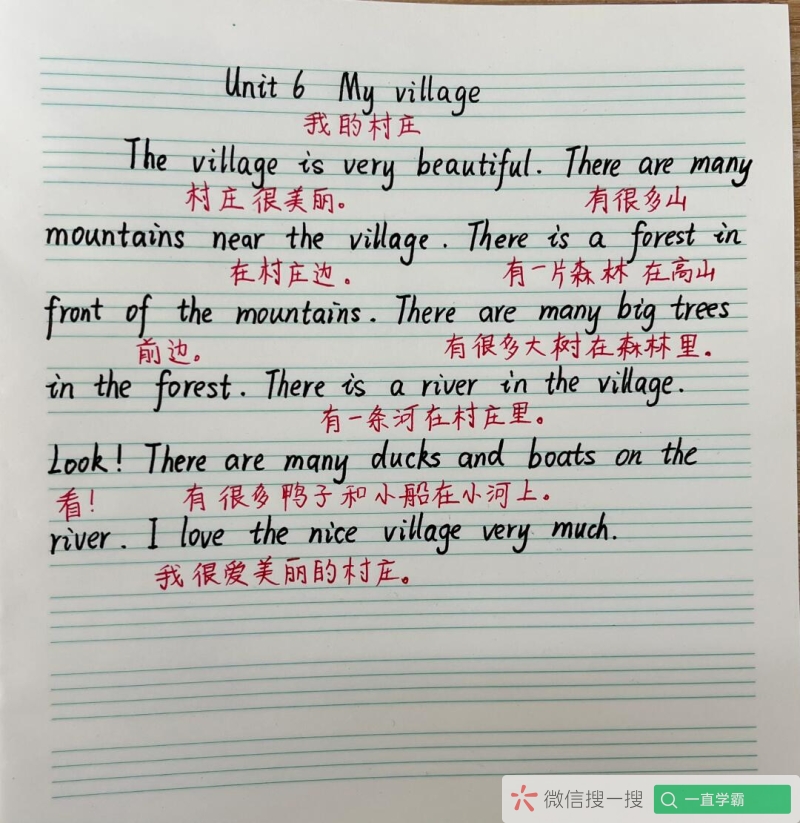 Unit 6 My village
我的村庄
The village is very beautiful. There are many
村庄很美丽。 有很多山
mountains near the village. There is a forest in
在村庄边。 有一片森林 在高山
front of the mountains. There are many big trees
前边。 有很多大树在森林里。
in the forest. There is a river in the village.
有一条河在村庄里。
Look! There are many ducks and boats on the
看! 有很多鸭子和小船在小河上。
river. I love the nice village very much.
我很爱美丽的村庄。
微信搜一搜 一直学霸